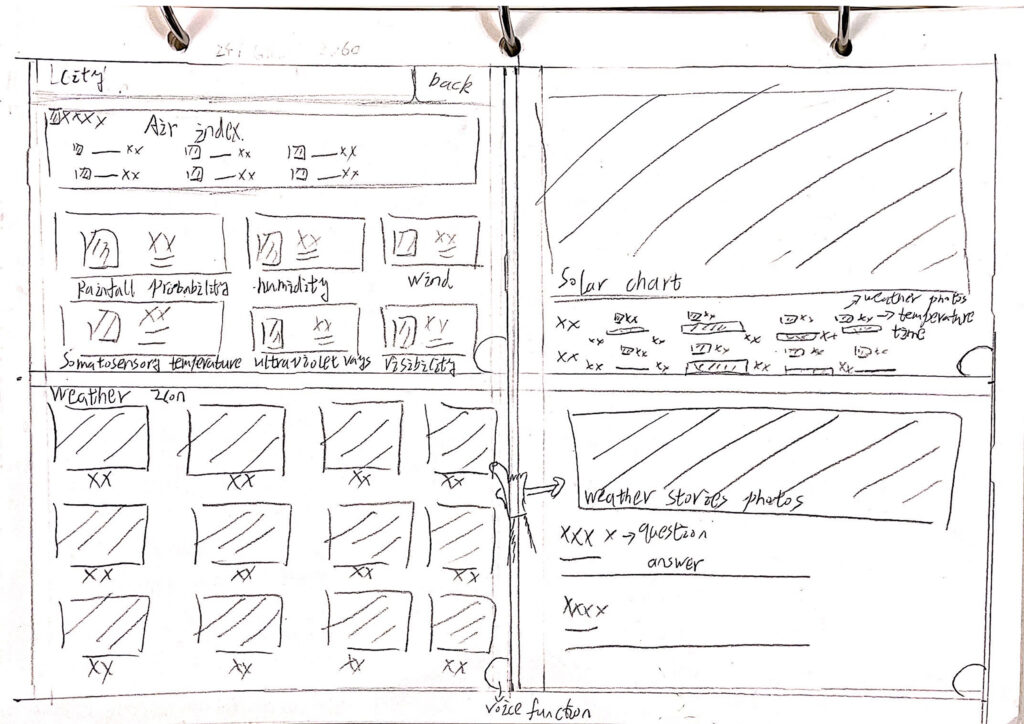 Lcity
back
XXXX
Air index.
XX XX XX
XX XX XX
XX XX XX
Rainfall probability humidity wind
XX XX XX
Somatosensory temperature ultraviolet rays visibility
Solar chart
weather photos
temperature
time
XX XX XX XX XX
XX XX XX
XX XX XX XX
XX XX XX XX
Weather icon
XX XX XX XX
XX XX XX XX
XX XX XX XX
weather stories photos
XXX X question
answer
XXXX
voice function